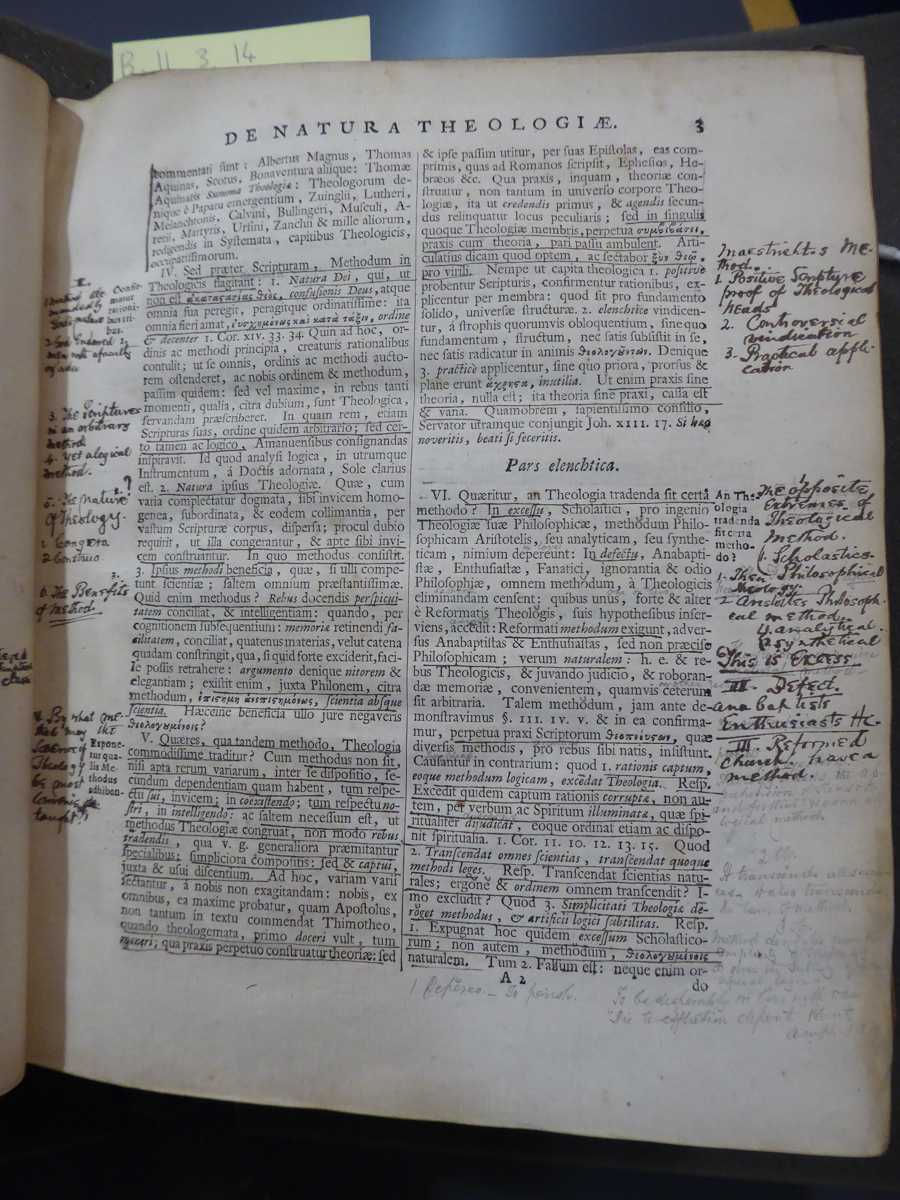 B. 11. 3. 14
DE NATURA THEOLOGIÆ.
3
commentati sunt: Albertus Magnus, Thomas
Aquinas, Scotus, Bonaventura aliique: Thomæ
Aquinatis Summa Theologiæ: Theologorum de-
nique è Papatu emergentium, Zuinglii, Lutheri,
Melanchtonis, Calvini, Bullingeri, Musculi, A-
retii, Martyris, Ursini, Zanchii & mille aliorum,
redigendis in Systemata, capitibus Theologicis,
occupatissimorum.
IV. Sed præter Scripturam, Methodum in
Theologicis flagitant: 1. Natura Dei, qui, ut
non est ἀκαταστασίας θεὸς, confusionis Deus, atque
omnia sua peregit, peragitque ordinatissime: ita
omnia fieri amat, εὐσχημόνως καὶ κατὰ τάξιν, ordine
& decenter 1. Cor. XIV. 33. 34. Quin ad hoc, or-
dinis ac methodi principia, creaturis rationalibus
contulit; ut se omnis, ordinis ac methodi aucto-
rem ostenderet, ac nobis ordinem & methodum,
passim quidem: sed vel maxime, in rebus tanti
momenti, qualia, citra dubium, sunt Theologica,
servandam præscriberet. In quam rem, etiam
Scripturas suas, ordine quidem arbitrario; sed cer-
to tamen ac logico, Amanuensibus consignandas
inspiravit. Id quod analysi logica, in utrumque
Instrumentum, á Doctis adornata, Sole clarius
est. 2. Natura ipsius Theologiæ. Quæ, cum
varia complectatur dogmata, sibi invicem homo-
genea, subordinata, & eodem collimantia, per
vastum Scripturæ corpus, dispersa; procul dubio
requirit, ut illa congerantur, & apte sibi invi-
cem construantur. In quo methodus consistit.
3. Ipsius methodi beneficia, quæ, si ulli compe-
tunt scientiæ; saltem omnium præstantissimæ.
Quid enim methodus? Rebus docendis perspicui-
tatem conciliat, & intelligentiam: quando, per
cognitionem subsequentium: memoriæ retinendi fa-
cilitatem, conciliat, quatenus materias, velut catena
quadam constringit, qua, si quid forte exciderit, faci-
le possis retrahere: argumento denique nitorem &
elegantiam; existit enim, juxta Philonem, citra
methodum, ἐπιστήμη ἀνεπιστήμονος, scientia absque
scientia. Hæccine beneficia ullo jure negaveris
θεολογουμένοις?
V. Quæres, qua tandem methodo, Theologia
commodissime traditur? Cum methodus non sit,
nisi apta rerum variarum, inter se dispositio, se-
cundum dependentiam quam habent, tum respe-
ctu sui, invicem; in coëxistendo; tum respectu no-
stri, in intelligendo: ac saltem necessum est, ut
methodus Theologiæ congruat, non modo rebus
tradendis, qua v. g. generaliora præmitantur
specialibus; simpliciora compositis: sed & captui,
juxta & usui discentium. Ad hoc, variam varii
sectantur, á nobis non exagitandam: nobis, ex
omnibus, ea maxime probatur, quam Apostolus,
non tantum in textu commendat Thimotheo,
quando theologemata, primo doceri vult, tum
suaderi; qua praxis perpetuo construatur theoriæ: sed
& ipse passim utitur, per suas Epistolas, eas com-
primis, quas ad Romanos scripsit, Ephesios, He-
bræos &c. Qua praxis, inquam, theoriæ con-
struatur, non tantum in universo corpore Theo-
logiæ, ita ut credendis primus, & agendis secun-
dus relinquatur locus peculiaris; sed in singulis
quoque Theologiæ membris, perpetua συμβιβάσει,
praxis cum theoria, pari passu ambulent. Arti-
culatius dicam quod optem, ac sectabor ξὺν θεῷ,
pro virili. Nempe ut capita theologica 1. positive
probentur Scripturis, confirmentur rationibus, ex-
plicentur per membra: quod sit pro fundamento
solido, universæ structuræ. 2. elenchtice vindicen-
tur, á strophis quorumvis obloquentium, sine quo
fundamentum, structum, nec satis subsistit in se,
nec satis radicatur in animis θεολογούντων. Denique
3. practice applicentur, sine quo priora, prorsus &
plane erunt ἄχρηστα, inutilia. Ut enim praxis sine
theoria, nulla est; ita theoria sine praxi, cassa est
& vana. Quamobrem, sapientissimo consilio,
Servator utramque conjungit Joh. XIII. 17. Si hæc
noveritis, beati si feceritis.
Pars elenchtica.
VI. Quæritur, an Theologia tradenda sit certâ
methodo? In excessu, Scholastici, pro ingenio
Theologiæ suæ Philosophicæ, methodum Philo-
sophicam Aristotelis, seu analyticam, seu synthe-
ticam, nimium depereunt: In defectu, Anabapti-
stæ, Enthusiastæ, Fanatici, ignorantia & odio
Philosophiæ, omnem methodum, à Theologicis
eliminandam censent: quibus unus, forte & alter
è Reformatis Theologis, suis hypothesibus inser-
viens, accedit: Reformati methodum exigunt, adver-
sus Anabaptistas & Enthusiastas, sed non præcise
Philosophicam; verum naturalem: h. e. & re-
bus Theologicis, & juvando judicio, & roboran-
dæ memoriæ, convenientem, quamvis ceterum
sit arbitraria. Talem methodum, jam ante de-
monstravimus §. III. IV. V. & in ea confirma-
mur, perpetua praxi Scriptorum θεοπνεύστων, quæ
diversis methodis, pro rebus sibi natis, insistunt.
Causantur in contrarium: quod 1. rationis captum,
eoque methodum logicam, excedat Theologia. Resp.
Excedit quidem captum rationis corruptæ, non au-
tem, per verbum ac Spiritum illuminatæ, quæ spi-
ritualiter dijudicat, eoque ordinat etiam ac dispo-
nit spiritualia. 1. Cor. 11. 10. 12. 13. 15. Quod
2. Transcendat omnes scientias, transcendat quoque
methodi leges. Resp. Transcendat scientias natu-
rales; ergóne & ordinem omnem transcendit? I-
mo excludit? Quod 3. Simplicitati Theologiæ de-
róget methodus, & artificii logici subtilitas. Resp.
1. Expugnat hoc quidem excessum Scholastico-
rum; non autem, methodum, θεολογουμένοις
naturalem. Tum 2. Falsum est: neque enim or-
A 2
do
Confir-
matur
rationi-
bus.
3. The Scriptures
in an arbitrary
method
4. Yet a logical
method.
5. The Nature
of Theology.
1 Congera
2 Construa
6. The Benefits
of method.
By what me-
thod may the
Science of
Theology
be most
taught?
Exponi-
tur qua-
lis Me-
thodus
adhiben-
Maestricht's Me-
thod.
1. Positive Scripture
proof of Theological
heads
2. Controversial
vindication
3. Practical appli-
cation
An The-
ologia
tradenda
sit certa
metho-
do?
The opposite
Extremes of
Theological
Method.
1. Scholastics.
1. Their Philosophical
Theology
2 Aristotles Philosoph-
ical method.
analytical
synthetical
This is Excess
II. Defect.
anabaptists
Enthusiasts &c.
III. Reformed
church. have a
method.
1 Depereo - To perish.
To be desperately in love with